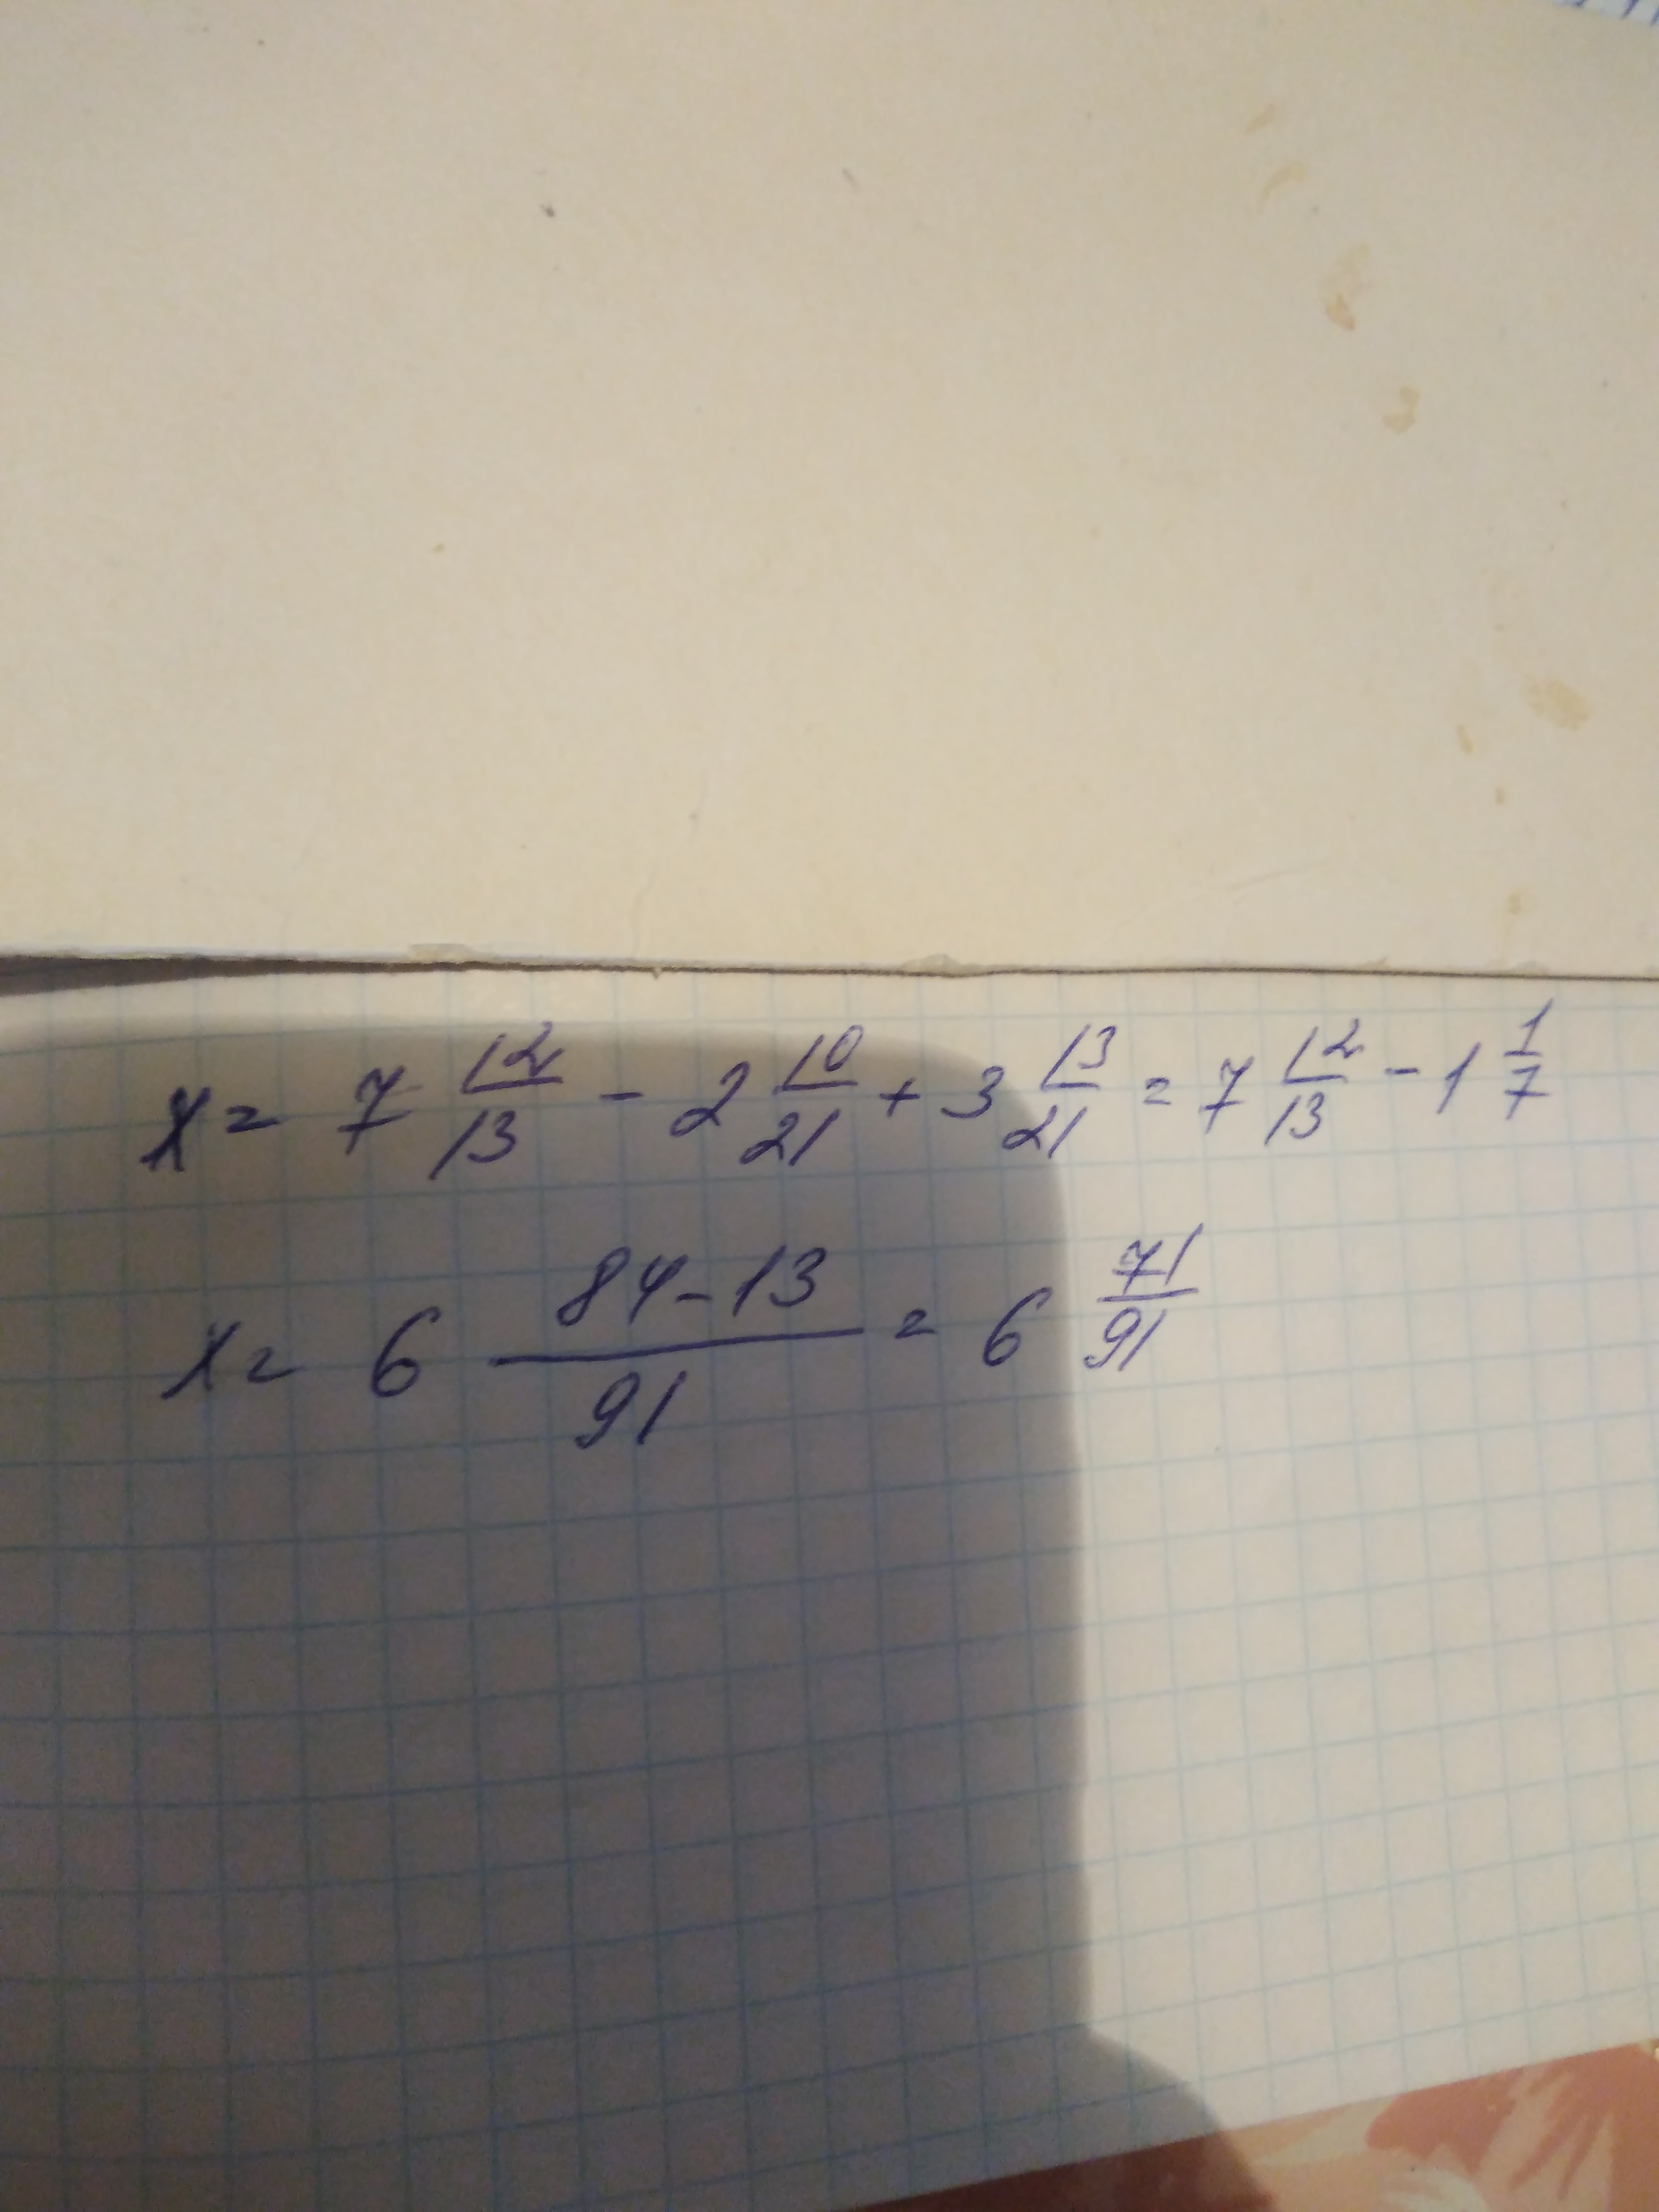 x = 7 12/13 - 2 10/21 + 3 13/21 = 7 12/13 - 1 1/7
x = 6 (84-13)/91 = 6 71/91